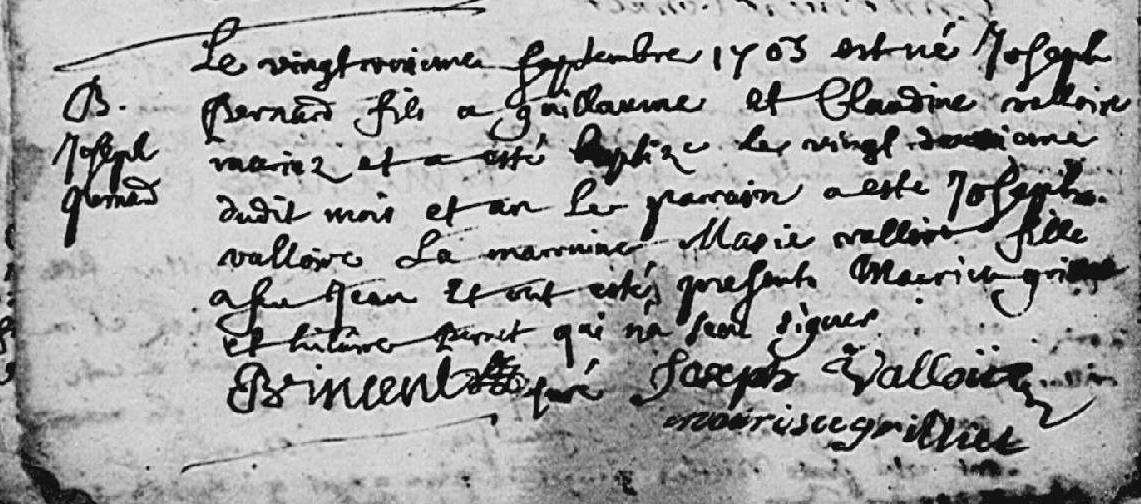 Le vingtroisieme septembre 1703 est né Joseph
B. Bernard fils a guillaume et Claudine valloire
Joseph mariez et a esté baptize le vingt
Bernard dudit mois et an Le parrain a este Joseph
valloire La marraine Marie valloire fille
a feu Jean Et ont estés presents Maurice
et perret qui n'a sceu signer
Vincent curé Joseph Valloire
mourisce grilliet